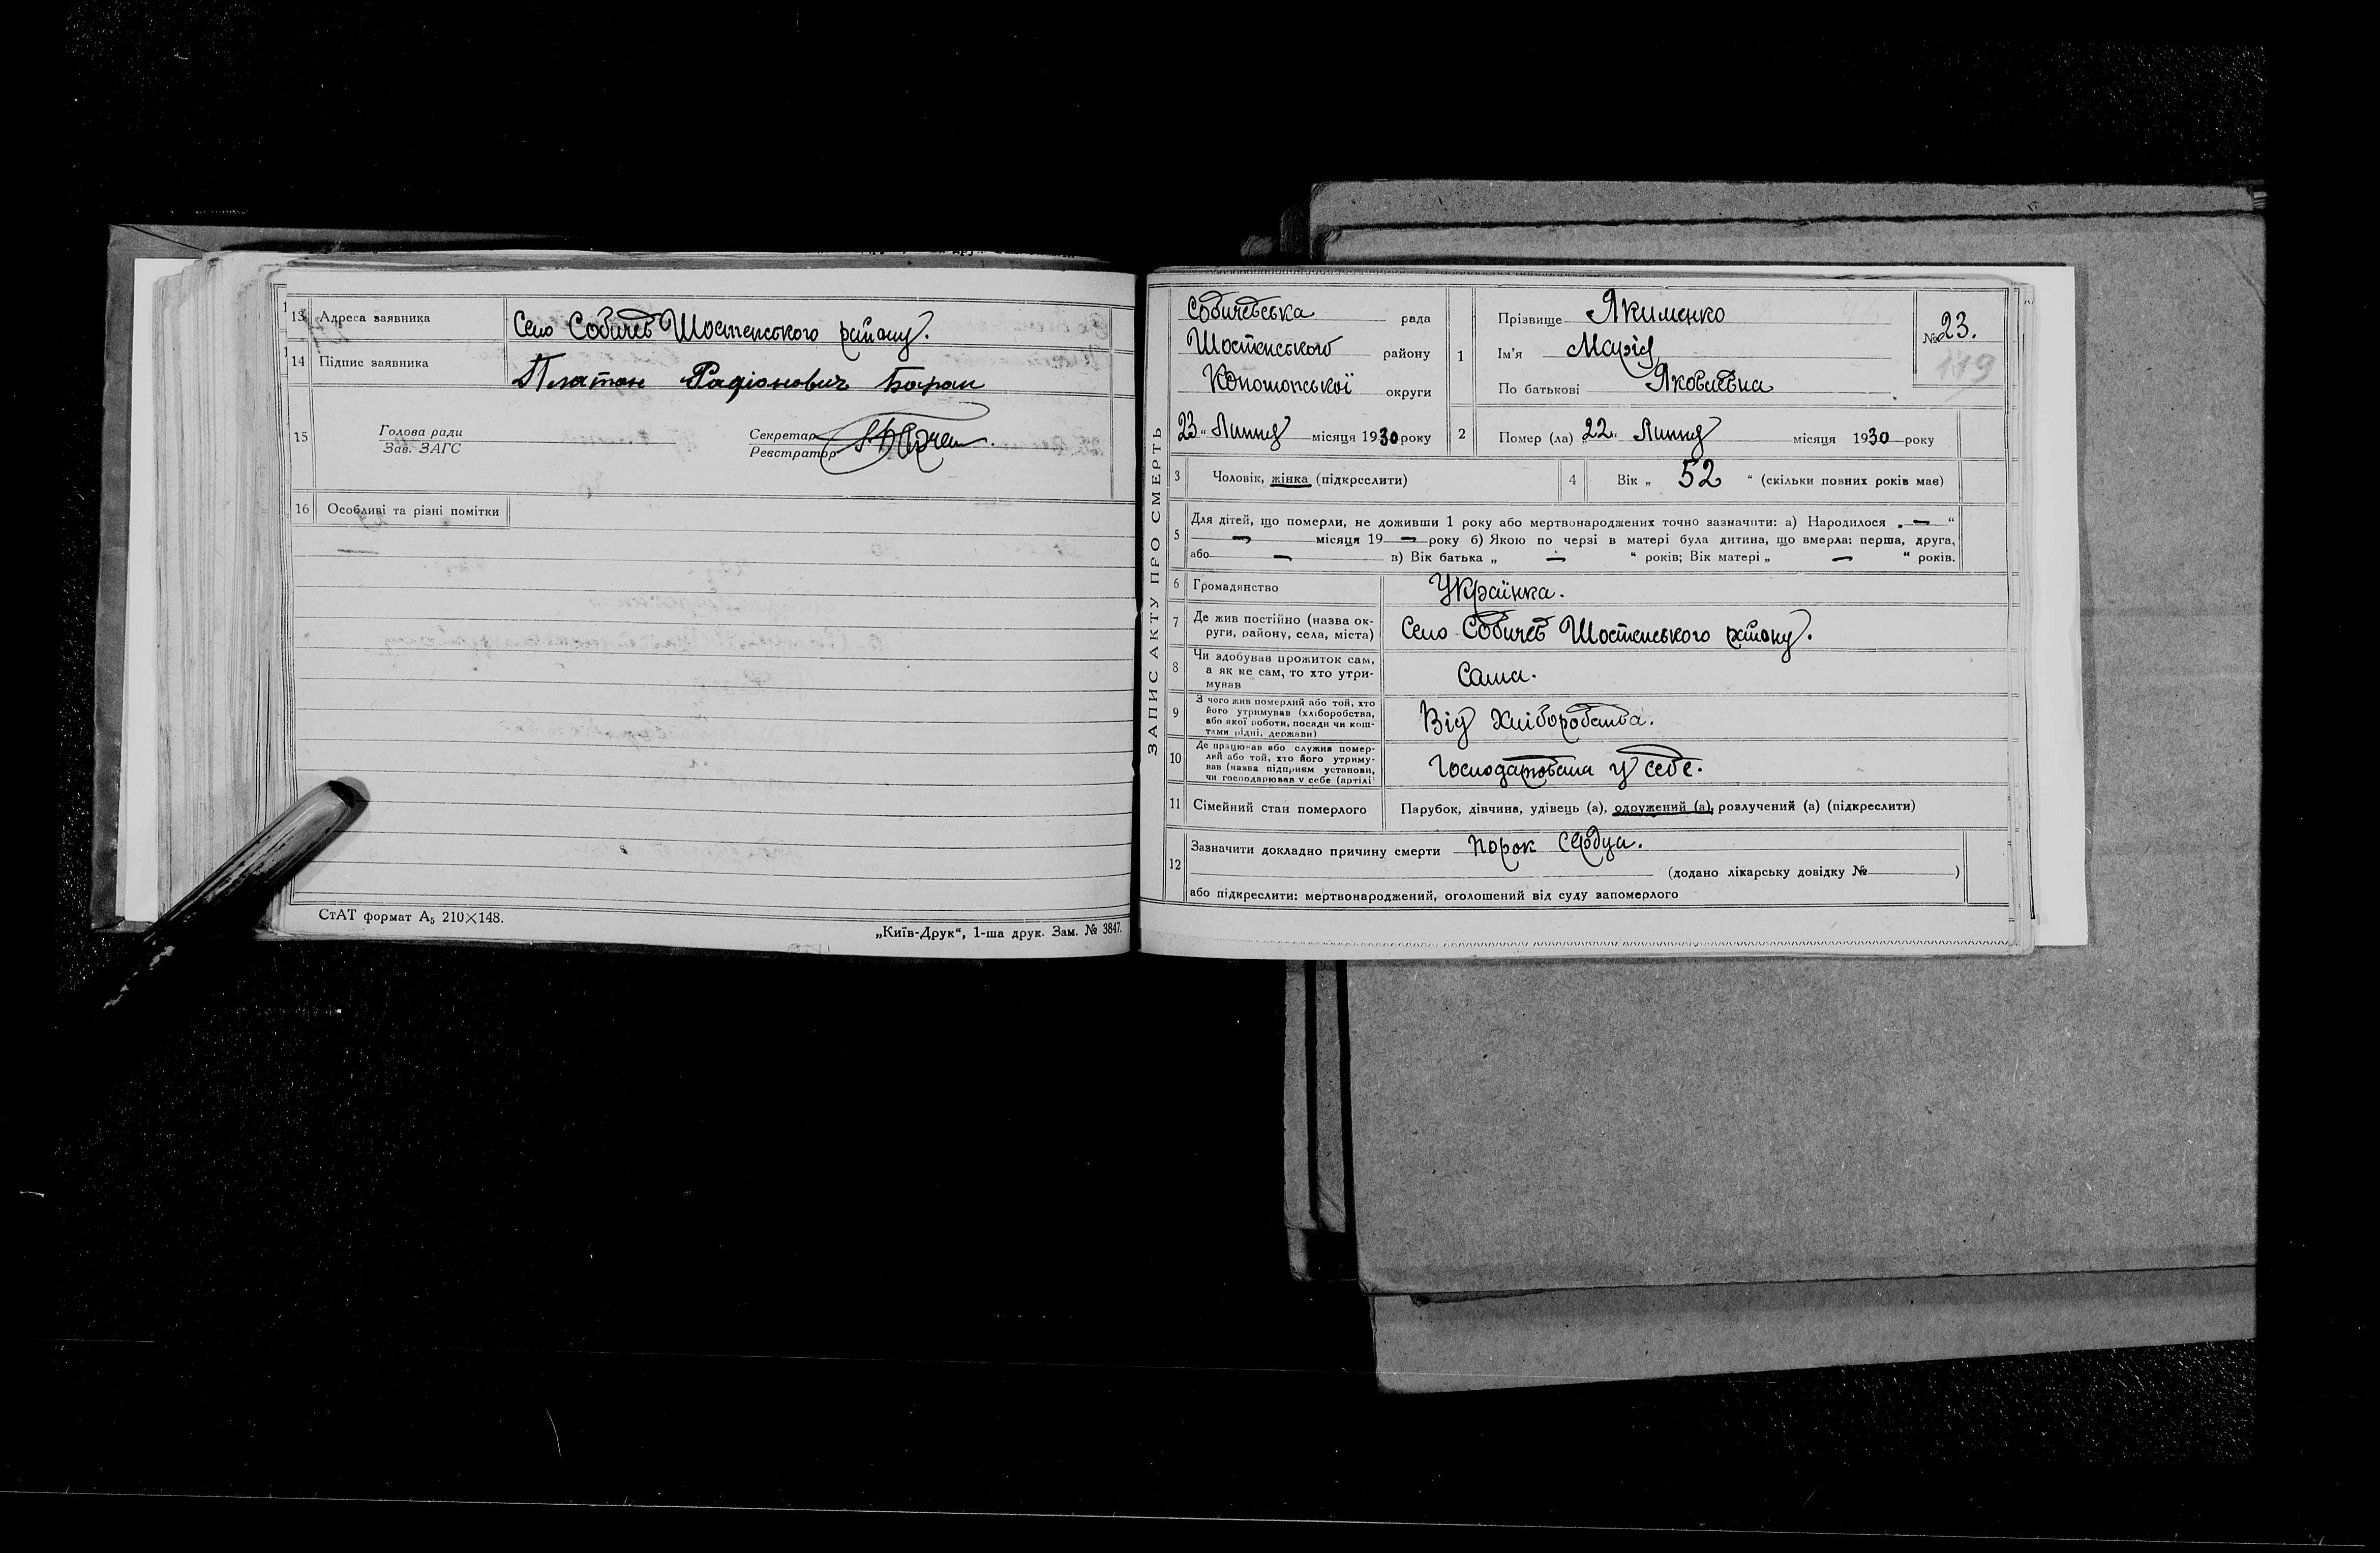 13 Адреса заявника Село Собичів Шостенського району.
14 Підпис заявника Платон Радіонович Баран
15 Голова ради
Зав. ЗАГС
Секретар
Реєстратор
16 Особливі та різні помітки
СтАТ формат А₅ 210×148.
„Київ-Друк“, 1-ша друк. Зам. № 3847.
ЗАПИС АКТУ ПРО СМЕРТЬ
Собичевська рада
Шостенського району
Конотопської округи
23 „ Липня місяця 1930 року
1 Прізвище Якименко
Ім'я Марія
По батькові Яковлевна
№ 23.
149
2 Помер (ла) „22„ Липня місяця 1930 року
3 Чоловік, жінка (підкреслити)
4 Вік „ 52 “ (скільки повних років має)
5 Для дітей, що померли, не доживши 1 року або мертвонароджених точно зазначити: а) Народилося „ — “
— місяця 19 — року б) Якою по черзі в матері була дитина, що вмерла: перша, друга,
або — в) Вік батька „ — “ років; Вік матері „ — “ років.
6 Громадянство Українка.
7 Де жив постійно (назва ок-
руги, району, села, міста) Село Собичів Шостенського району.
8 Чи здобував прожиток сам,
а як не сам, то хто утри-
мував Сама.
9 З чого жив померлий або той, хто
його утримував (хліборобства,
або якої роботи, посади чи кош-
тами рідні, держави) Від Хліборобства.
10 Де працював або служив помер-
лий або той, хто його утриму-
вав (назва підприєм установи,
чи господарював у себе (артілі) Господарювала у себе.
11 Сімейний стан померлого Парубок, дівчина, удівець (а), одружений (а), розлучений (а) (підкреслити)
12 Зазначити докладно причину смерти порок сердца.
(додано лікарську довідку № )
або підкреслити: мертвонароджений, оголошений від суду запомерлого